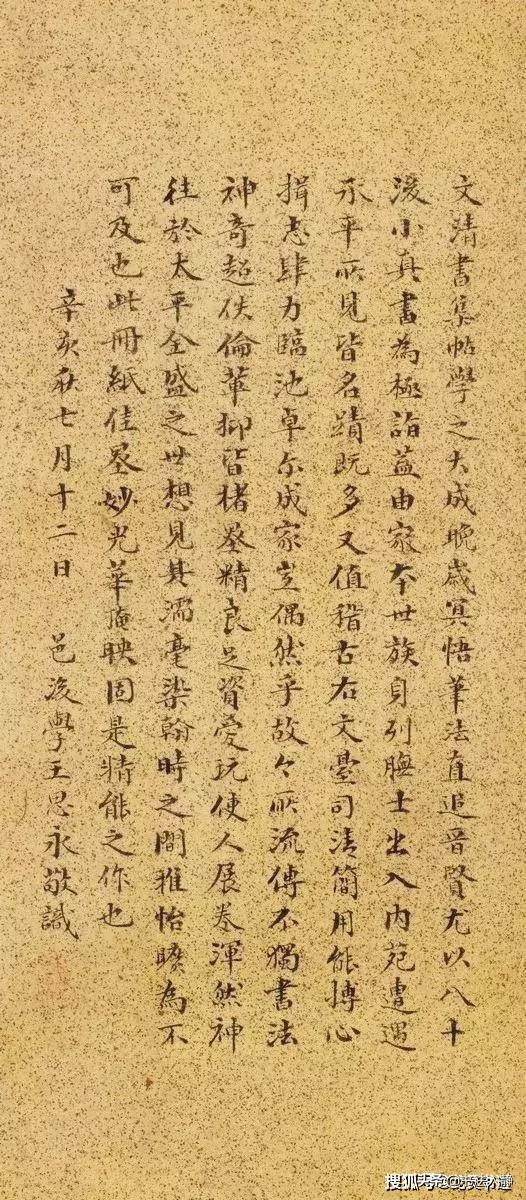 文清書集帖學之大成晚歲冥悟筆法直追晉賢尤以八十
後小真書為極詣蓋由家本世族身列膴士出入内苑遭遇
承平所見皆名蹟既多又值稽古右文臺司清簡用能摶心
揖志肆力臨池卓尔成家豈偶然乎故今所流傳不獨書法
神奇超佚倫輩抑皆楮墨精良足資愛玩使人展卷渾然神
往於太平全盛之世想見其濡毫染翰時之閒雅怡曠為不
可及也此冊紙佳墨妙光華掩映固是精能之作也
辛亥秋七月十二日 邑後學王思永敬識
搜狐号@